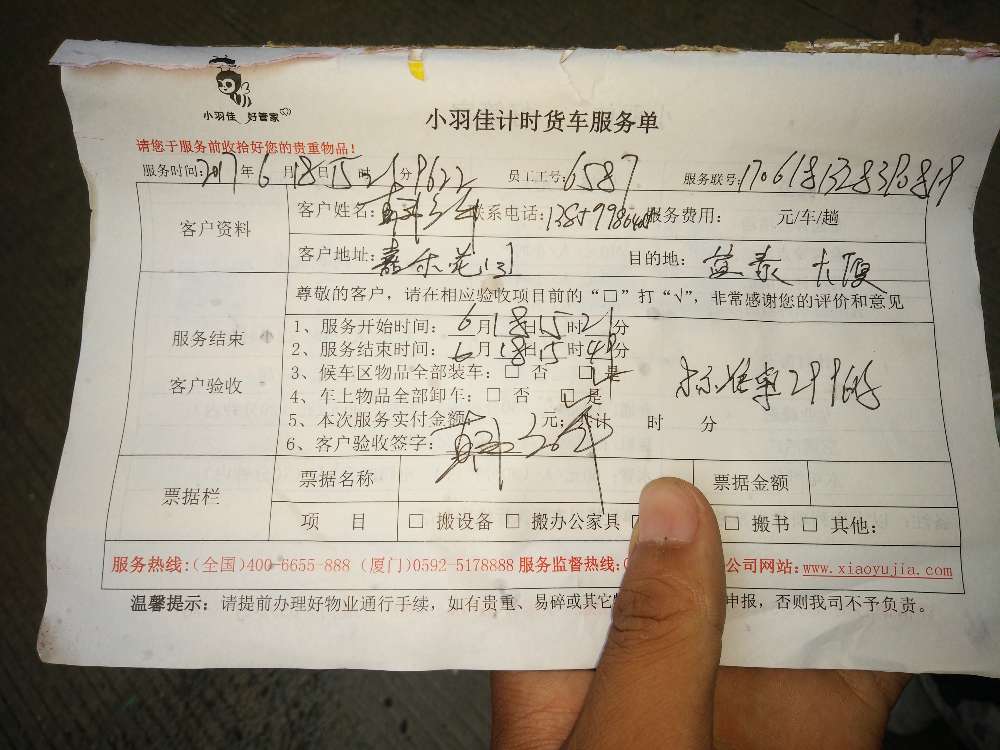 小羽佳 好管家
小羽佳计时货车服务单
请您于服务前收拾好您的贵重物品！
服务时间：2017年6月18日15时21分 9622 员工工号：6587 服务联号：
客户资料
客户姓名： 联系电话： 服务费用： 元/车/趟
客户地址：嘉禾花 目的地：益泰大厦
尊敬的客户，请在相应验收项目前的“□”打“√”，非常感谢您的评价和意见
服务结束
客户验收
1、服务开始时间：6月18日15时21分
2、服务结束时间：6月18日15时48分
3、候车区物品全部装车：□ 否 □ 是
4、车上物品全部卸车：□ 否 □ 是
5、本次服务实付金额： 元；共计 时 分
6、客户验收签字：
票据栏
票据名称 票据金额
项 目 □ 搬设备 □ 搬办公家具 □ 搬书 □ 其他：
服务热线：(全国)400-6655-888 (厦门)0592-5178888 服务监督热线： 公司网站：www.xiaoyujia.com
温馨提示：请提前办理好物业通行手续，如有贵重、易碎或其它 申报，否则我司不予负责。